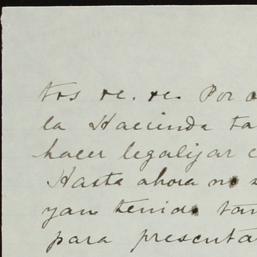 tos &c. &c. Por
la Hacienda
hacer legalizar
Hasta ahora no
yan tenido
para presenta